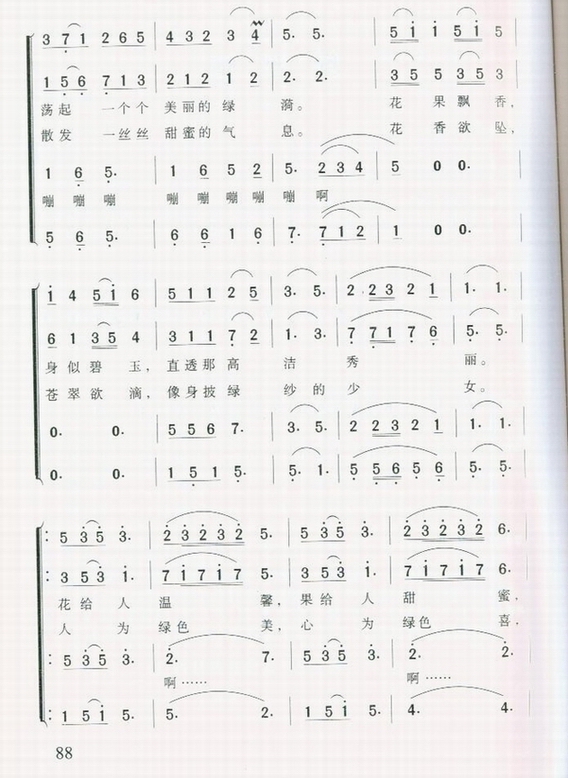 3 7 1 2 6 5 | 4 3 2 3 4 | 5. 5. | 5 i 5 i 5 |
1 5 6 7 1 3 | 2 1 2 1 2 | 2. 2. | 3 5 3 5 3
荡起 一个个 美丽的绿 漪。 花 果飘香,
散发 一丝丝 甜蜜的气 息。 花 香欲坠,
1 6 5. | 1 6 5 2 | 5. 2 3 4 | 5 0 0.
嘣 嘣 嘣 嘣 嘣 嘣 嘣 嘣 啊
5 6 5. | 6 6 1 6 | 7. 7 1 2 | 1 0 0.
i 4 5 i 6 | 5 1 1 2 5 | 3. 5. | 2 2 3 2 1 | 1. 1. |
6 1 3 5 4 | 3 1 1 7 2 | 1. 3. | 7 7 1 7 6 | 5. 5. |
身似碧 玉, 直透那高 洁 秀 丽。
苍翠欲 滴, 像身披绿 纱的少 女。
0. 0. | 5 5 6 7. | 3. 5. | 2 2 3 2 1 | 1. 1. |
0. 0. | 1 5 1 5. | 5. 1. | 5 5 6 5 6 | 5. 5. |
: 5 3 5 3. | 2 3 2 3 2 5. | 5 3 5 3. | 2 3 2 3 2 6.
: 3 5 3 1. | 7 i 7 i 7 5. | 3 5 3 1. | 7 i 7 i 7 6.
花给 人 温 馨, 果给 人 甜 蜜.
人 为 绿色 美, 心 为 绿色 喜.
: 5 3 5 3. | 2. 7. | 5 3 5 3. | 2. 2.
啊…… 啊……
: 1 5 i 5. | 5. 2. | 1 5 i 5. | 4. 4.
88